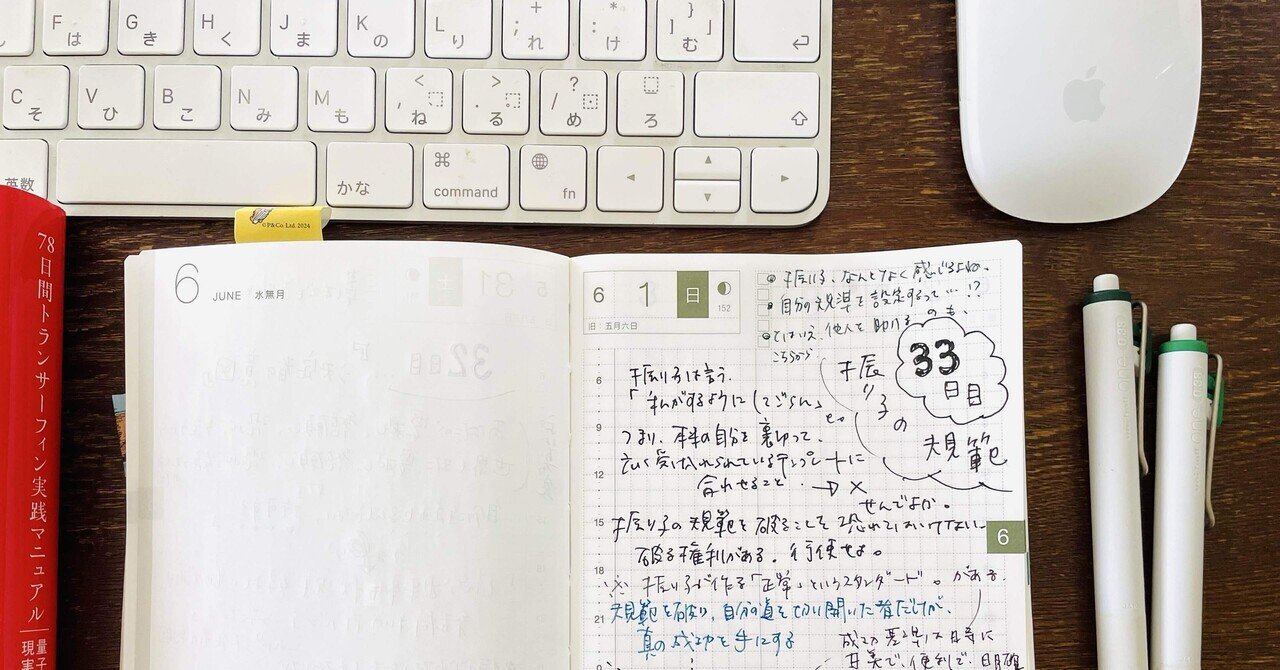 F は
G き
H く
J ま
K の
L り
+ ; れ
* : け
} ] む
C そ
V ひ
B こ
N み
M も
< , ね
> . る
? / め
ろ
英数
かな
⌘ command
fn
©P&Co. Ltd. 2024
78日間トランサーフィン実践マニュアル
量子
現実
6 JUNE 水無月
6 1 日
152
旧:五月六日
振り子、なんとなく感じるよね。
自分の規準を設定するって…!?
とはいえ、他人を助けるのも、
こちらから
33
日目
振り子の
規範
振り子は言う。
「私がするようにしてごらん」
と。
つまり、本来の自分を裏切って、
広く受け入れられているテンプレートに
合わせること。→ ×
せんでよか。
振り子の規範を破ることを恐れてはいけない
破る権利がある。行使せよ。
※ 振り子が作る「正準」というスタンダード。がある
規範を破り、自分の道を切り開いた者だけが、
真の成功を手にする
成功基準は時に
甘美で、便利で、明確
6
9
12
15
18
21
6